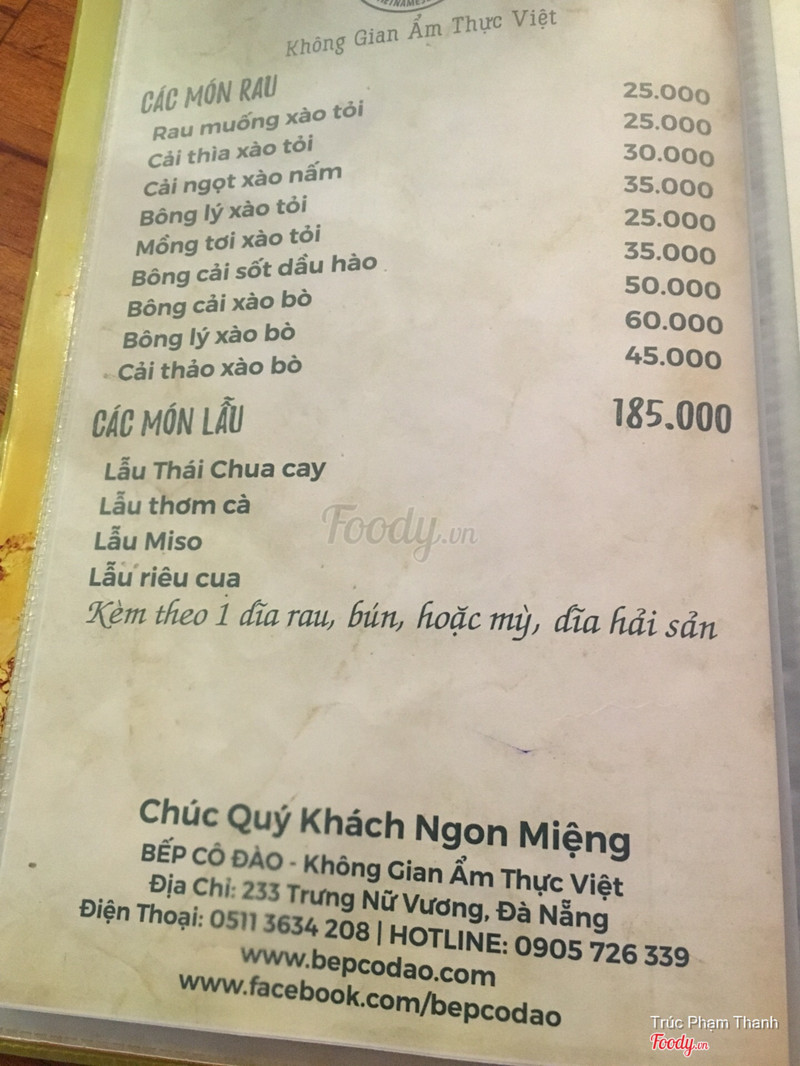 Không Gian Ẩm Thực Việt
CÁC MÓN RAU
Rau muống xào tỏi 25.000
Cải thìa xào tỏi 25.000
Cải ngọt xào nấm 30.000
Bông lý xào tỏi 35.000
Mồng tơi xào tỏi 25.000
Bông cải sốt dầu hào 35.000
Bông cải xào bò 50.000
Bông lý xào bò 60.000
Cải thảo xào bò 45.000
CÁC MÓN LẨU 185.000
Lẩu Thái Chua cay
Lẩu thơm cà
Lẩu Miso
Lẩu riêu cua
Kèm theo 1 dĩa rau, bún, hoặc mỳ, dĩa hải sản
Foody.vn
Chúc Quý Khách Ngon Miệng
BẾP CÔ ĐÀO - Không Gian Ẩm Thực Việt
Địa Chỉ: 233 Trưng Nữ Vương, Đà Nẵng
Điện Thoại: 0511 3634 208 | HOTLINE: 0905 726 339
www.bepcodao.com
www.facebook.com/bepcodao
Trúc Phạm Thanh
Foody.vn